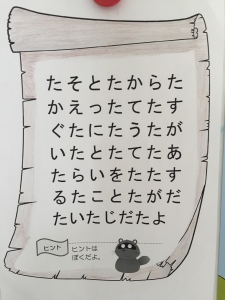 たそとたからた
かえったてたす
ぐたにたうたが
いたとたてたあ
たらいをたたす
るたことたがだ
たいたじだたよ
ヒント
ヒントは
ぼくだよ。